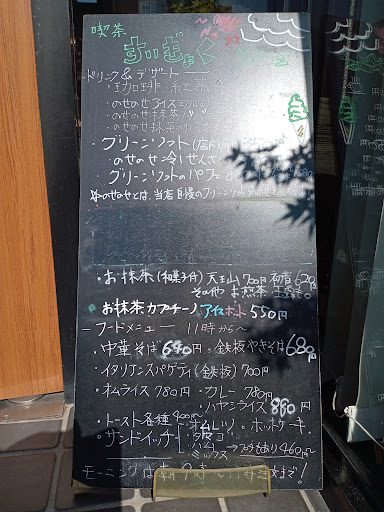 喫茶
すいぎょく
ドリンク&デザート
・珈琲・紅茶
・のせのせアイス
・のせのせ抹茶ババ
・のせのせ抹茶
・グリーンソフト(店
のせのせ冷しぜんざ
グリーンソフトのパフェ
のせのせとは、当店自慢のグリーンソフト
・お抹茶(和菓子付)天王山700円 初音620円
その他 お煎茶 玉露
お抹茶カプチーノ アイスホット 550円
ーフードメニュー ー 11時から〜
・中華そば 640円 ・鉄板やきそば 680円
・イタリアンスパゲティ(鉄板)700円
・オムライス 780円 ・カレー 780円
・ハヤシライス 860円
・トースト各種 400円〜
・サンドイッチ オムレツ ・ホットケーキ
タマゴ
ハム
ミックス
460円〜
モーニングは 時 注文まで!